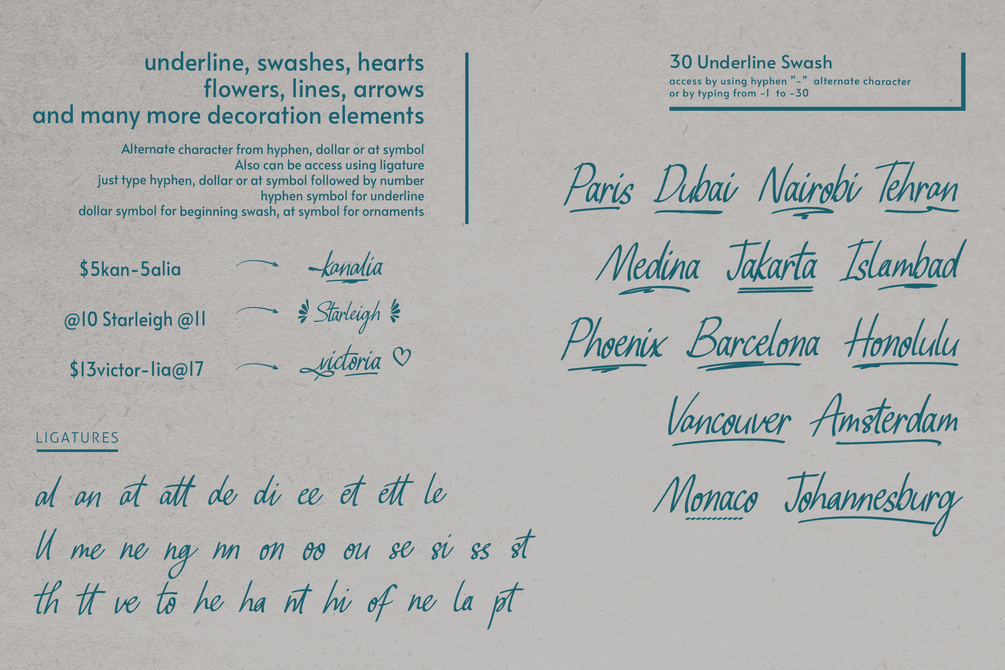 underline, swashes, hearts
flowers, lines, arrows
and many more decoration elements
Alternate character from hyphen, dollar or at symbol
Also can be access using ligature
just type hyphen, dollar or at symbol followed by number
hyphen symbol for underline
dollar symbol for beginning swash, at symbol for ornaments
$5kan-5alia
kanalia
@10 Starleigh @11
Starleigh
$13victor-1ia@17
victoria
LIGATURES
al an at att de di ee et ett le
ll me ne ng nn on oo ou se si ss st
th tt ve to he ha nt hi of ne la pt
30 Underline Swash
access by using hyphen "-" alternate character
or by typing from -1 to -30
Paris Dubai Nairobi Tehran
Medina Jakarta Islambad
Phoenix Barcelona Honolulu
Vancouver Amsterdam
Monaco Johannesburg